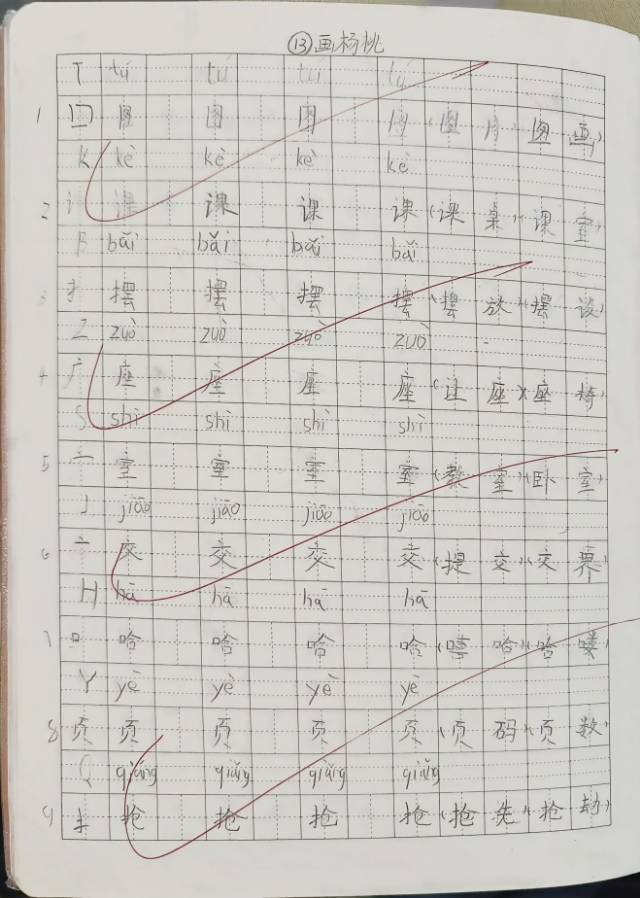 ⑬画杨桃
T tú tú tú tú
1 囗 图 图 图 图(图片)(图画)
K kè kè kè kè
2 讠 课 课 课 课(课桌)(课室)
B bǎi bǎi bǎi bǎi
3 扌 摆 摆 摆 摆(摆放)(摆设)
Z zuò zuò zuò zuò
4 广 座 座 座 座(让座)(座椅)
S shì shì shì shì
5 宀 室 室 室 室(教室)(卧室)
J jiāo jiāo jiāo jiāo
6 亠 交 交 交 交(提交)(交界)
H hā hā hā hā
7 口 哈 哈 哈 哈(嘻哈)(哈喽)
Y yè yè yè yè
8 页 页 页 页 页(页码)(页数)
Q qiǎng qiǎng qiǎng qiǎng
9 扌 抢 抢 抢 抢(抢先)(抢劫)